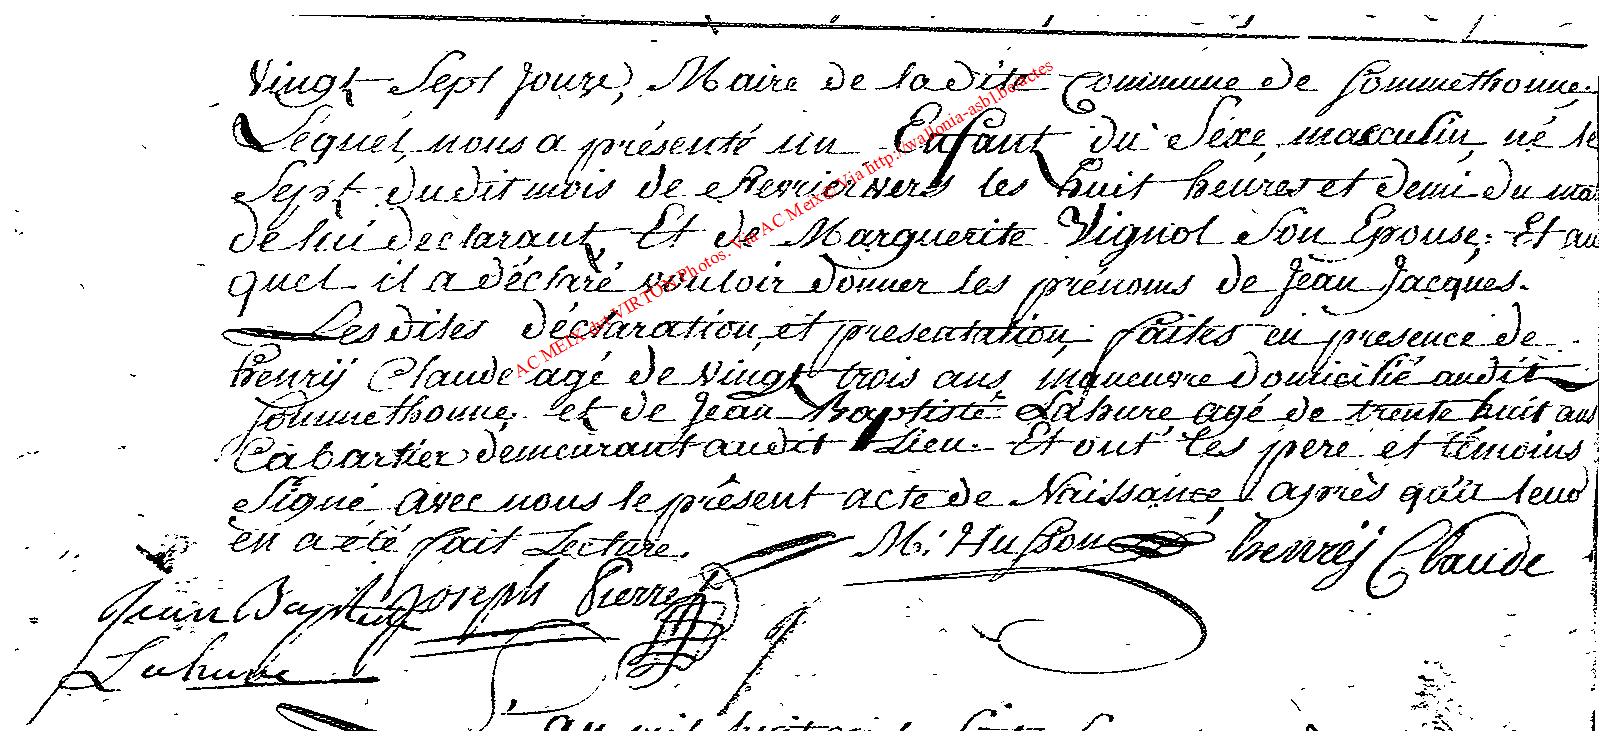 Vingt Sept Jouze, Maire de la dite Commune de Sommethonne.
Léquel, nous a présenté un Enfant du Séxe, masculin, né le
Sept dudit mois de Fevrier vers les huit heures et demi du ma
de lui déclarant, Et de Marguerite Vignol Son Epouse; Et au
quel il a déclaré vouloir donner les prénoms de Jean Jacques.
Les dites déclaration, et presentation, faites en presence de
henrÿ Claude agé de vingt trois ans, maneuvre domicilié audit
Sommethonne; et de Jean Baptiste Lahure agé de trente huit ans
Cabartier demeurant audit Lieu. Et ont les pere et témoins
Signé avec nous le présent acte de Naissance, après qu'il leud
en a été fait Lecture.
M. Husson henrÿ Claude
Jean Baptiste Joseph Pierret
Lahure
AC MEIX dvt VIRTON Photos. Via AC Meix. Via http://wallonia-asbl.be/actes